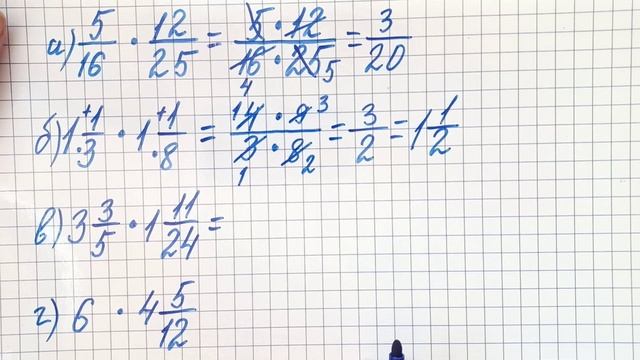 а) 5/16 · 12/25 = 5·12/16·25 4 5 = 3/20
б) 1 +1/·3 · 1 +1/·8 = 1 4·9 3/3·8 1 2 = 3/2 = 1 1/2
в) 3 3/5 · 1 11/24 =
г) 6 · 4 5/12